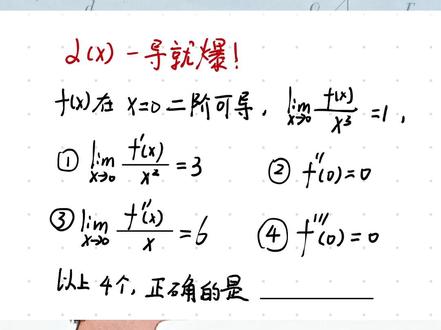 α(x) 一导就爆!
f(x)在 x=0 二阶可导, lim x→0 f(x)/x³ =1,
① lim x→0 f'(x)/x² =3 ② f''(0)=0
③ lim x→0 f''(x)/x =6 ④ f'''(0)=0
以上 4个, 正确的是 ______